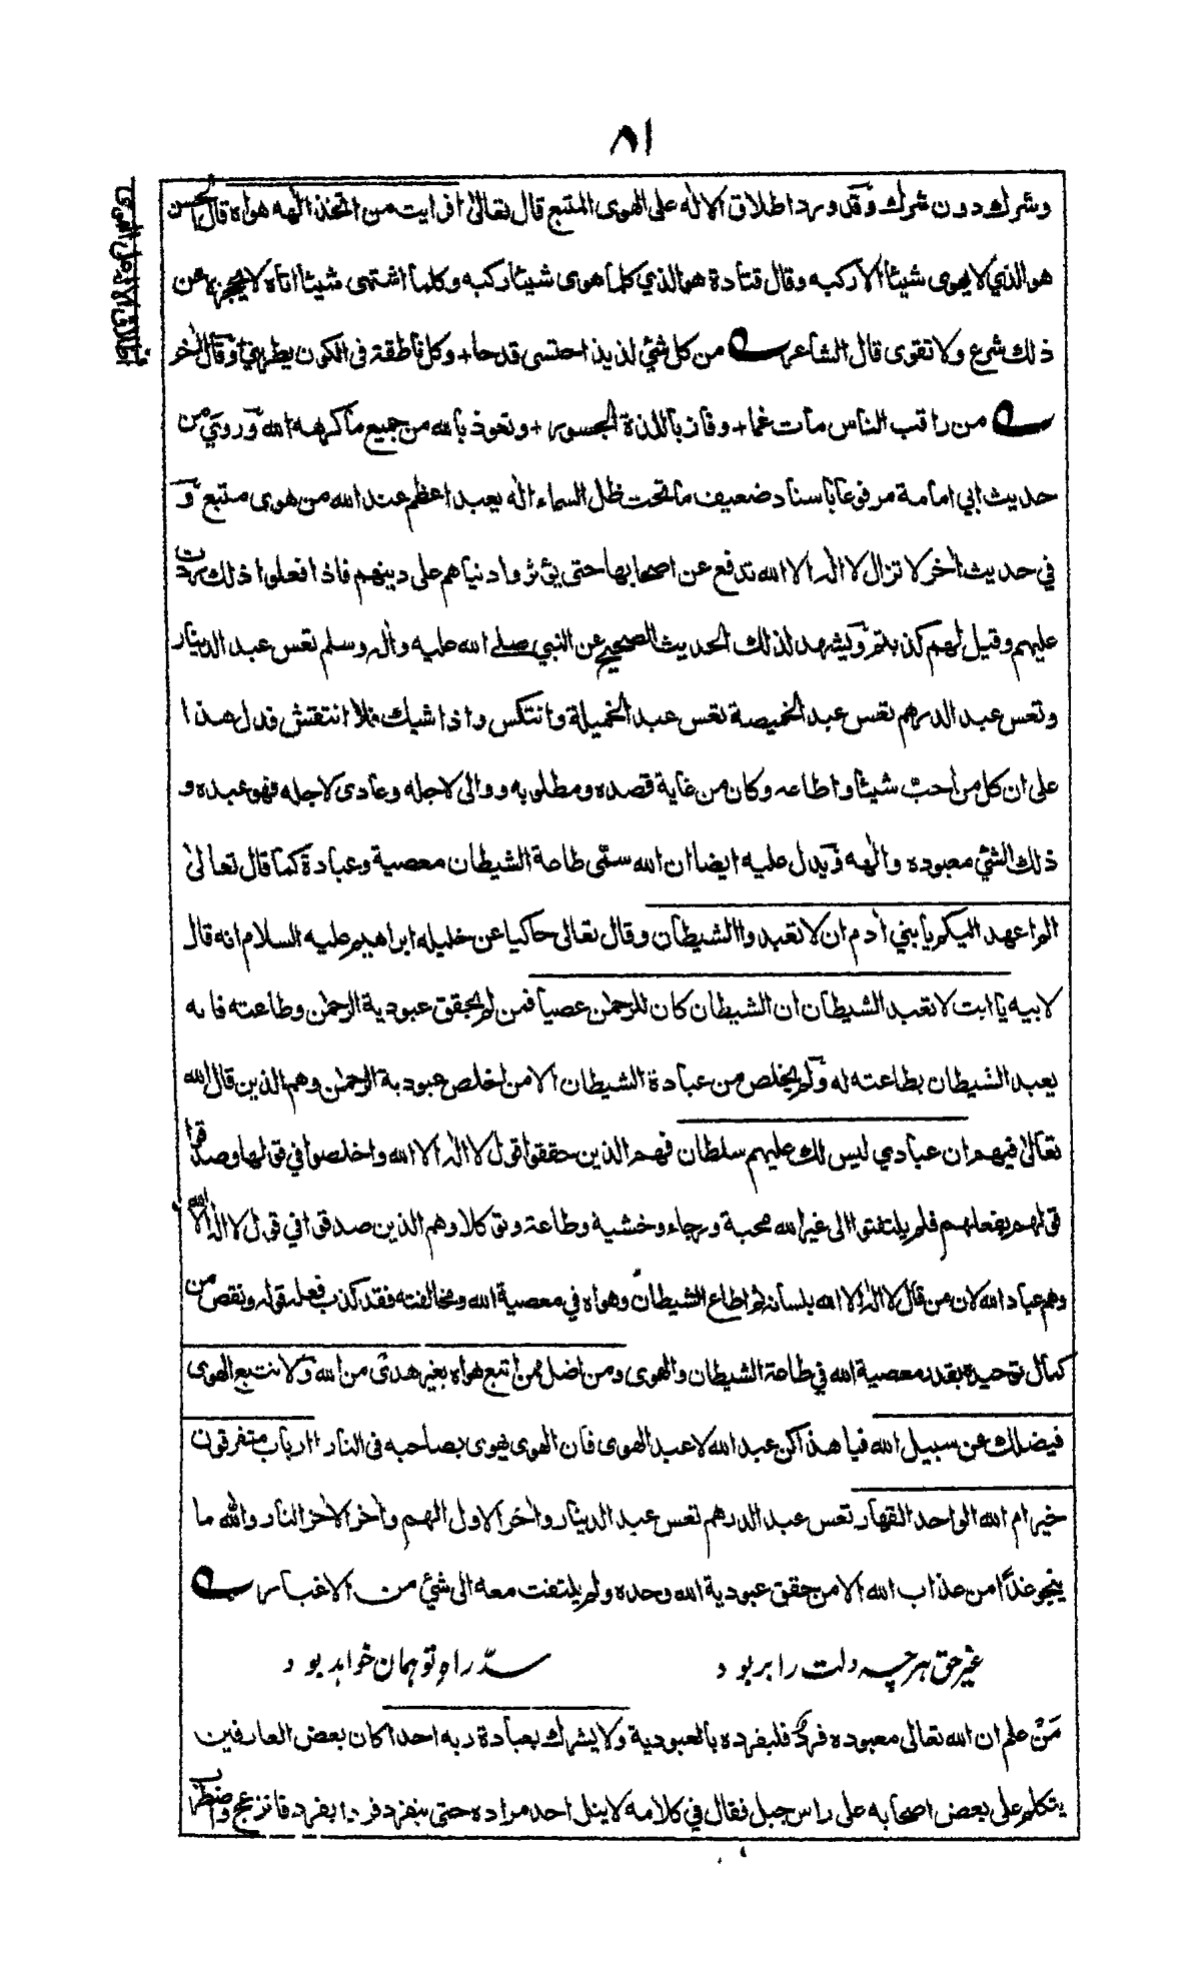 ٨١
اطلاق الاله على الهوى
وشرك دون شرك وقد ورد اطلاق الاله على الهوى المتبع قال تعالى افرايت من اتخذ الهه هواه قال الحسن
هو الذي لا يهوى شيئا الا ركبه وقال قتادة هو الذي كلما هوى شيئا ركبه وكلما اشتهى شيئا اتاه لا يحجزه عن
ذلك شرع ولا تقوى قال الشاعر من كل شئ لذيذ احتسى قدحا + وكل ناطقة فى الكون يطربني وقال اٰخر
من راقب الناس مات غما + وفاز باللذة الجسور + ونعوذ بالله من جميع ما كرهه الله وروي من
حديث ابي امامة مرفوعا باسناد ضعيف ما تحت ظل السماء اله يعبد اعظم عند الله من هوى متبع و
في حديث اٰخر لا تزال لا اله الا الله تدفع عن اصحابها حتى يؤثروا دنياهم على دينهم فاذا فعلوا ذلك ردت
عليهم وقيل لهم كذبتم ويشهد لذلك الحديث الصحيح عن النبي صلى الله عليه واٰله وسلم تعس عبد الدينار
وتعس عبد الدرهم تعس عبد الخميصة تعس عبد الخميلة وانتكس واذا شيك فلا انتقش فدل هذا
على ان كل من احبّ شيئا واطاعه وكان من غاية قصده ومطلوبه ووالى لاجله وعادى لاجله فهو عبده و
ذلك الشئ معبوده والهه ويدل عليه ايضا ان الله سمّى طاعة الشيطان معصية وعبادة كما قال تعالىٰ
الم اعهد اليكم يا بني اٰدم ان لا تعبدوا الشيطان وقال تعالى حاكيا عن خليله ابراهيم عليه السلام انه قال
لابيه يا ابت لا تعبد الشيطان ان الشيطان كان للرحمٰن عصيا فمن لم يحقق عبودية الرحمٰن وطاعته فانه
يعبد الشيطان بطاعته له ولم يخلص من عبادة الشيطان الا من اخلص عبودية الرحمٰن وهم الذين قال الله
تعالىٰ فيهم ان عبادي ليس لك عليهم سلطان فهم الذين حققوا قول لا اله الا الله واخلصوا في قولها وصدقوا
قولهم بفعلهم فلم يلتفتوا الى غير الله محبة ورجاء وخشية وطاعة وتوكلا وهم الذين صدقوا في قول لا اله الا الله
وهم عباد الله لان من قال لا اله الا الله بلسانه ثم اطاع الشيطان وهواه في معصية الله ومخالفته فقد كذب فعله قوله ونقص من
كمال توحيده بقدر معصية الله في طاعة الشيطان والهوى ومن اضل ممن اتبع هواه بغير هدًى من الله ولا تتبع الهوى
فيضلك عن سبيل الله فيا هذا كن عبد الله لا عبد الهوى فان الهوى يهوى بصاحبه فى النار ءارباب متفرقون
خير ام الله الواحد القهار تعس عبد الدرهم تعس عبد الدينار واٰخر الاول الهم واٰخر الاٰخر النار والله ما
ينجو غدًا من عذاب الله الا من حقق عبودية الله وحده ولم يلتفت معه الى شئ من الاغيار
غير حق هر چه دلت را بر بود سدّ راه تو همان خواهد بود
مَنْ علم ان الله تعالى معبوده فردٌ فليفرده بالعبودية ولا يشرك بعبادة ربه احدا كان بعض العارفين
يتكلم على بعض اصحابه على راس جبل فقال في كلامه لا ينال احد مراده حتى ينفرد فردا بفرد فانزعج واضطرب